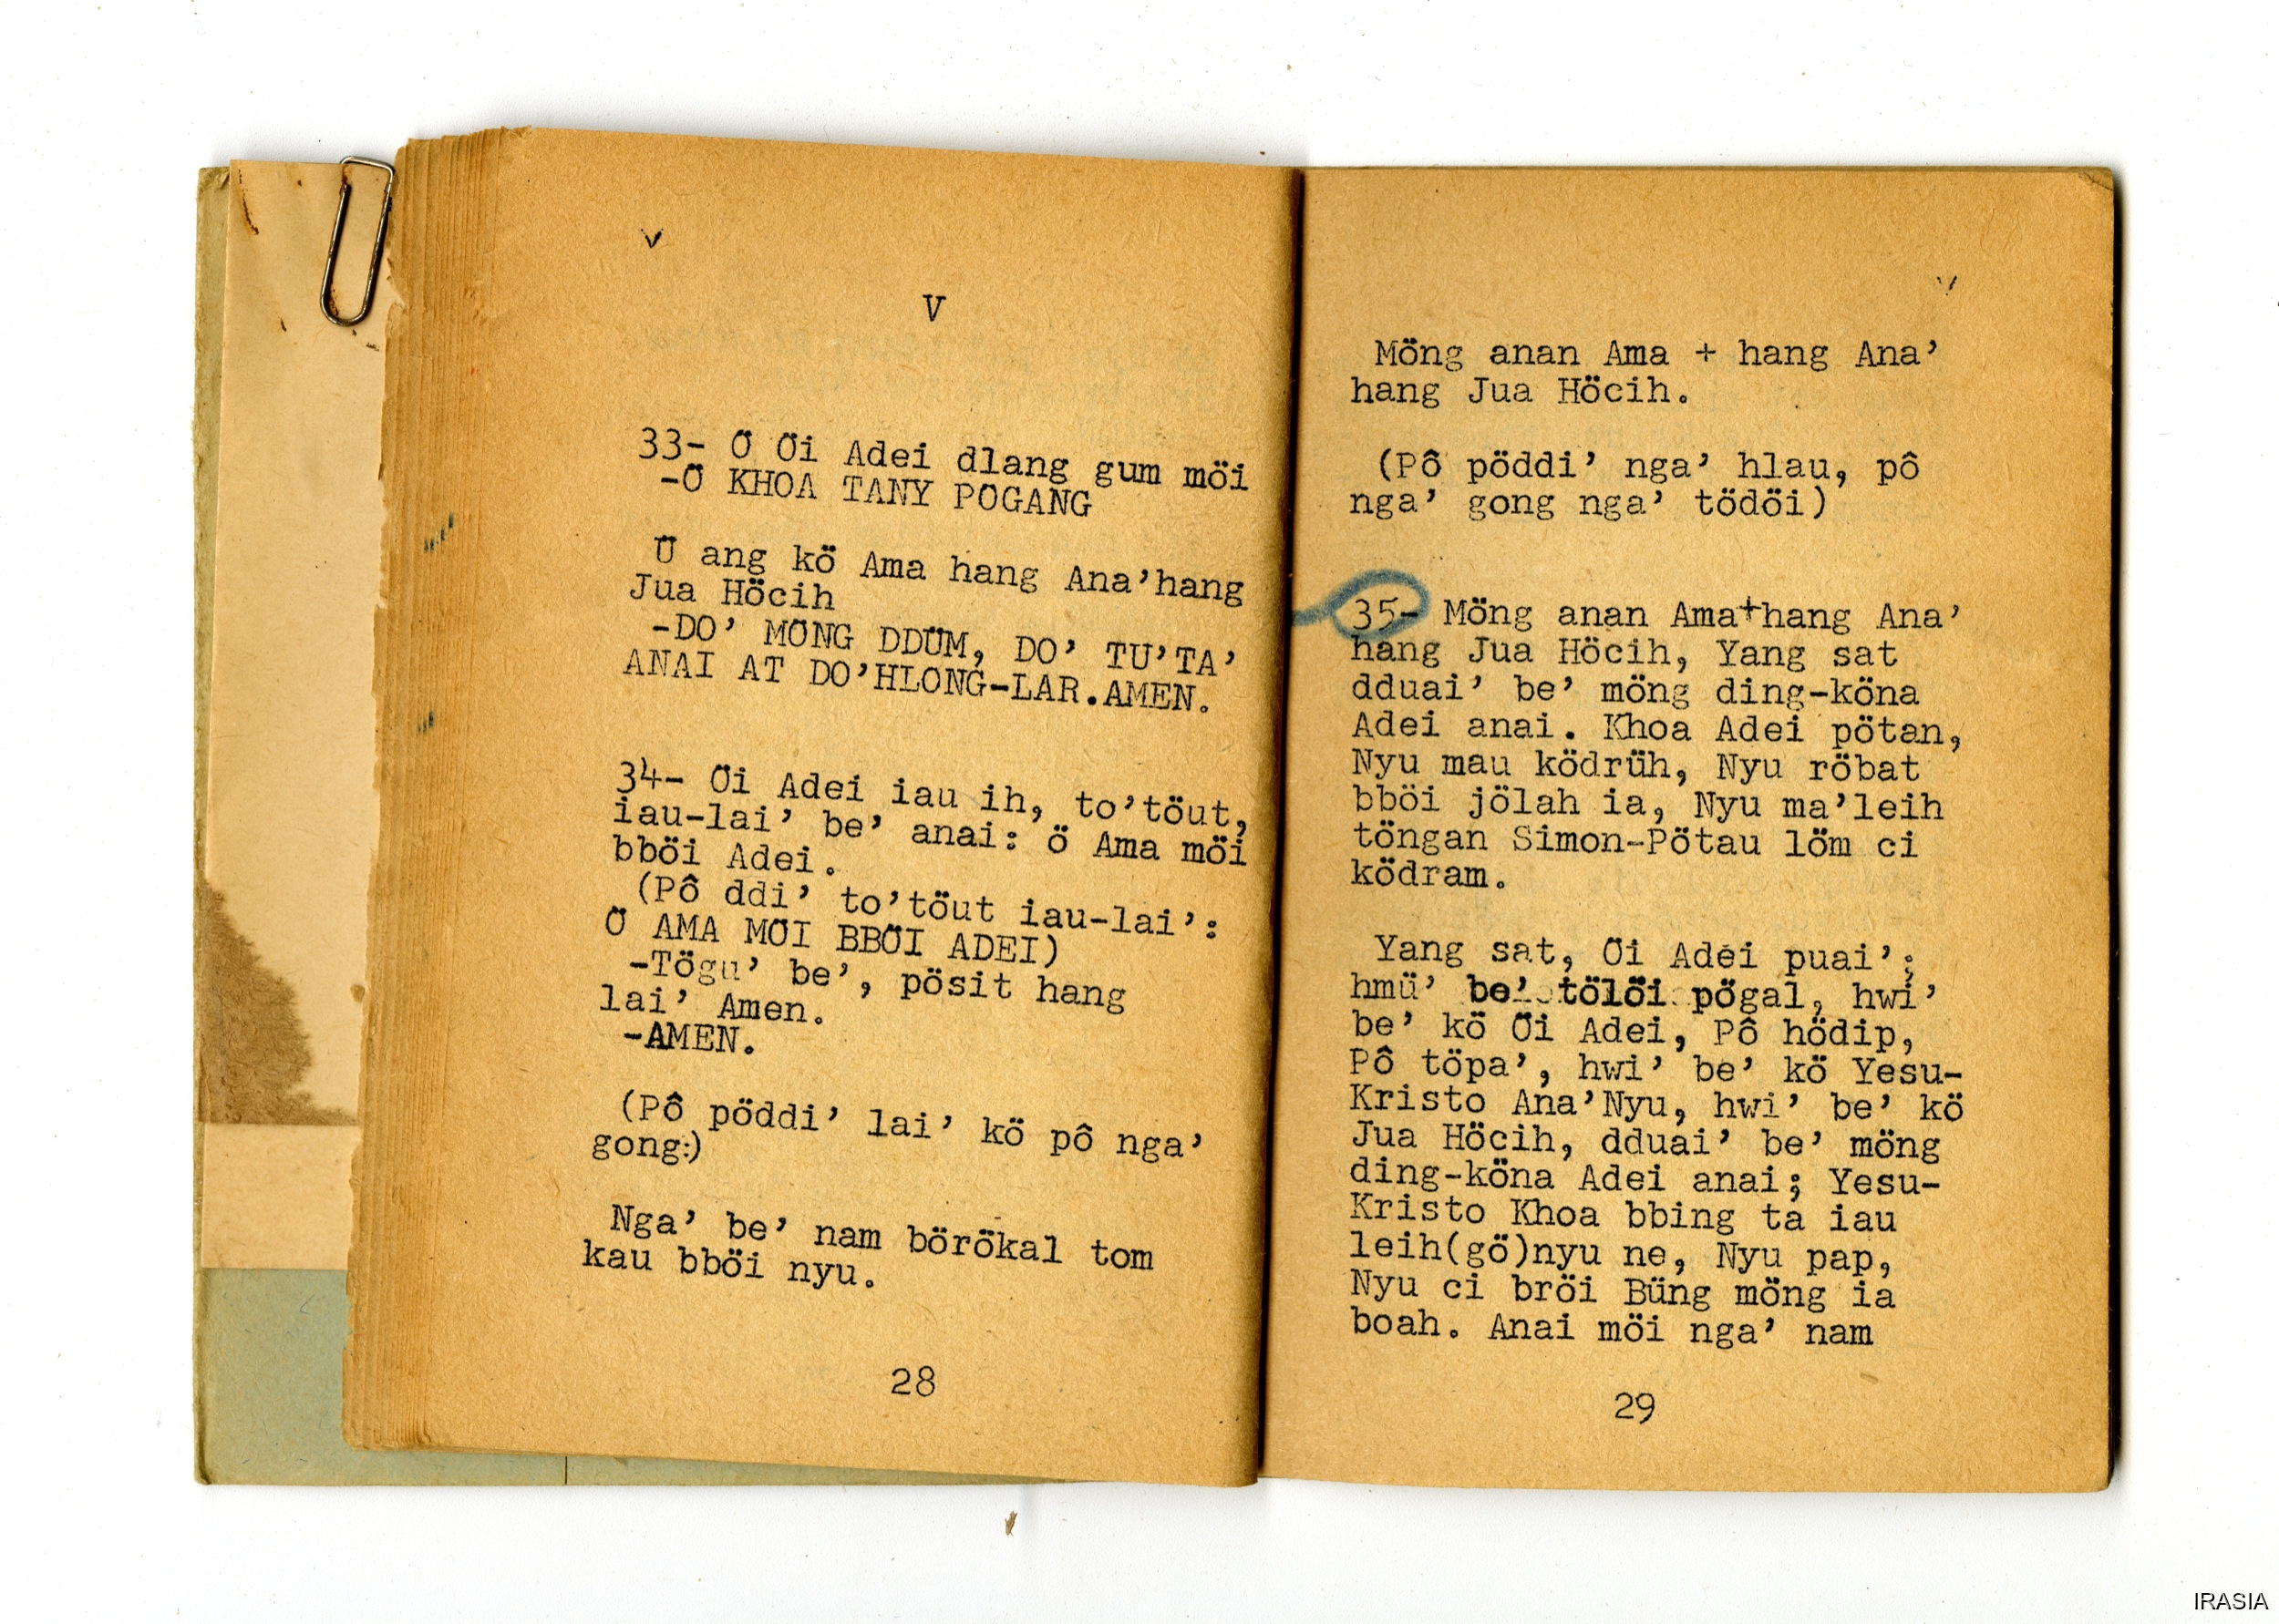 V
33- Ö Öi Adei dlang gum möi
-Ö KHOA TANY PÖGANG
Ü ang kö Ama hang Ana’hang
Jua Höcih
-DO’ MÖNG DDÜM, DO’ TU’TA’
ANAI AT DO’HLONG-LAR.AMEN.
34- Öi Adei iau ih, to’töut,
iau-lai’ be’ anai: ö Ama möi
bböi Adei.
(Pô ddi’ to’töut iau-lai’:
Ö AMA MÖI BBÖI ADEI)
-Tögu’ be’, pösit hang
lai’ Amen.
-AMEN.
(Pô pöddi’ lai’ kö pô nga’
gong:)
Nga’ be’ nam börökal tom
kau bböi nyu.
28
Möng anan Ama + hang Ana’
hang Jua Höcih.
(Pô pöddi’ nga’ hlau, pô
nga’ gong nga’ tödöi)
35- Möng anan Ama+hang Ana’
hang Jua Höcih, Yang sat
dduai’ be’ möng ding-köna
Adei anai. Khoa Adei pötan,
Nyu mau ködrüh, Nyu röbat
bböi jölah ia, Nyu ma’leih
töngan Simon-Pötau löm ci
ködram.
Yang sat, Öi Adei puai’;
hmü’ be’ tölöi pögal, hwi’
be’ kö Öi Adei, Pô hödip,
Pô töpa’, hwi’ be’ kö Yesu-
Kristo Ana’Nyu, hwi’ be’ kö
Jua Höcih, dduai’ be’ möng
ding-köna Adei anai; Yesu-
Kristo Khoa bbing ta iau
leih(gö)nyu ne, Nyu pap,
Nyu ci bröi Büng möng ia
boah. Anai möi nga’ nam
29
IRASIA